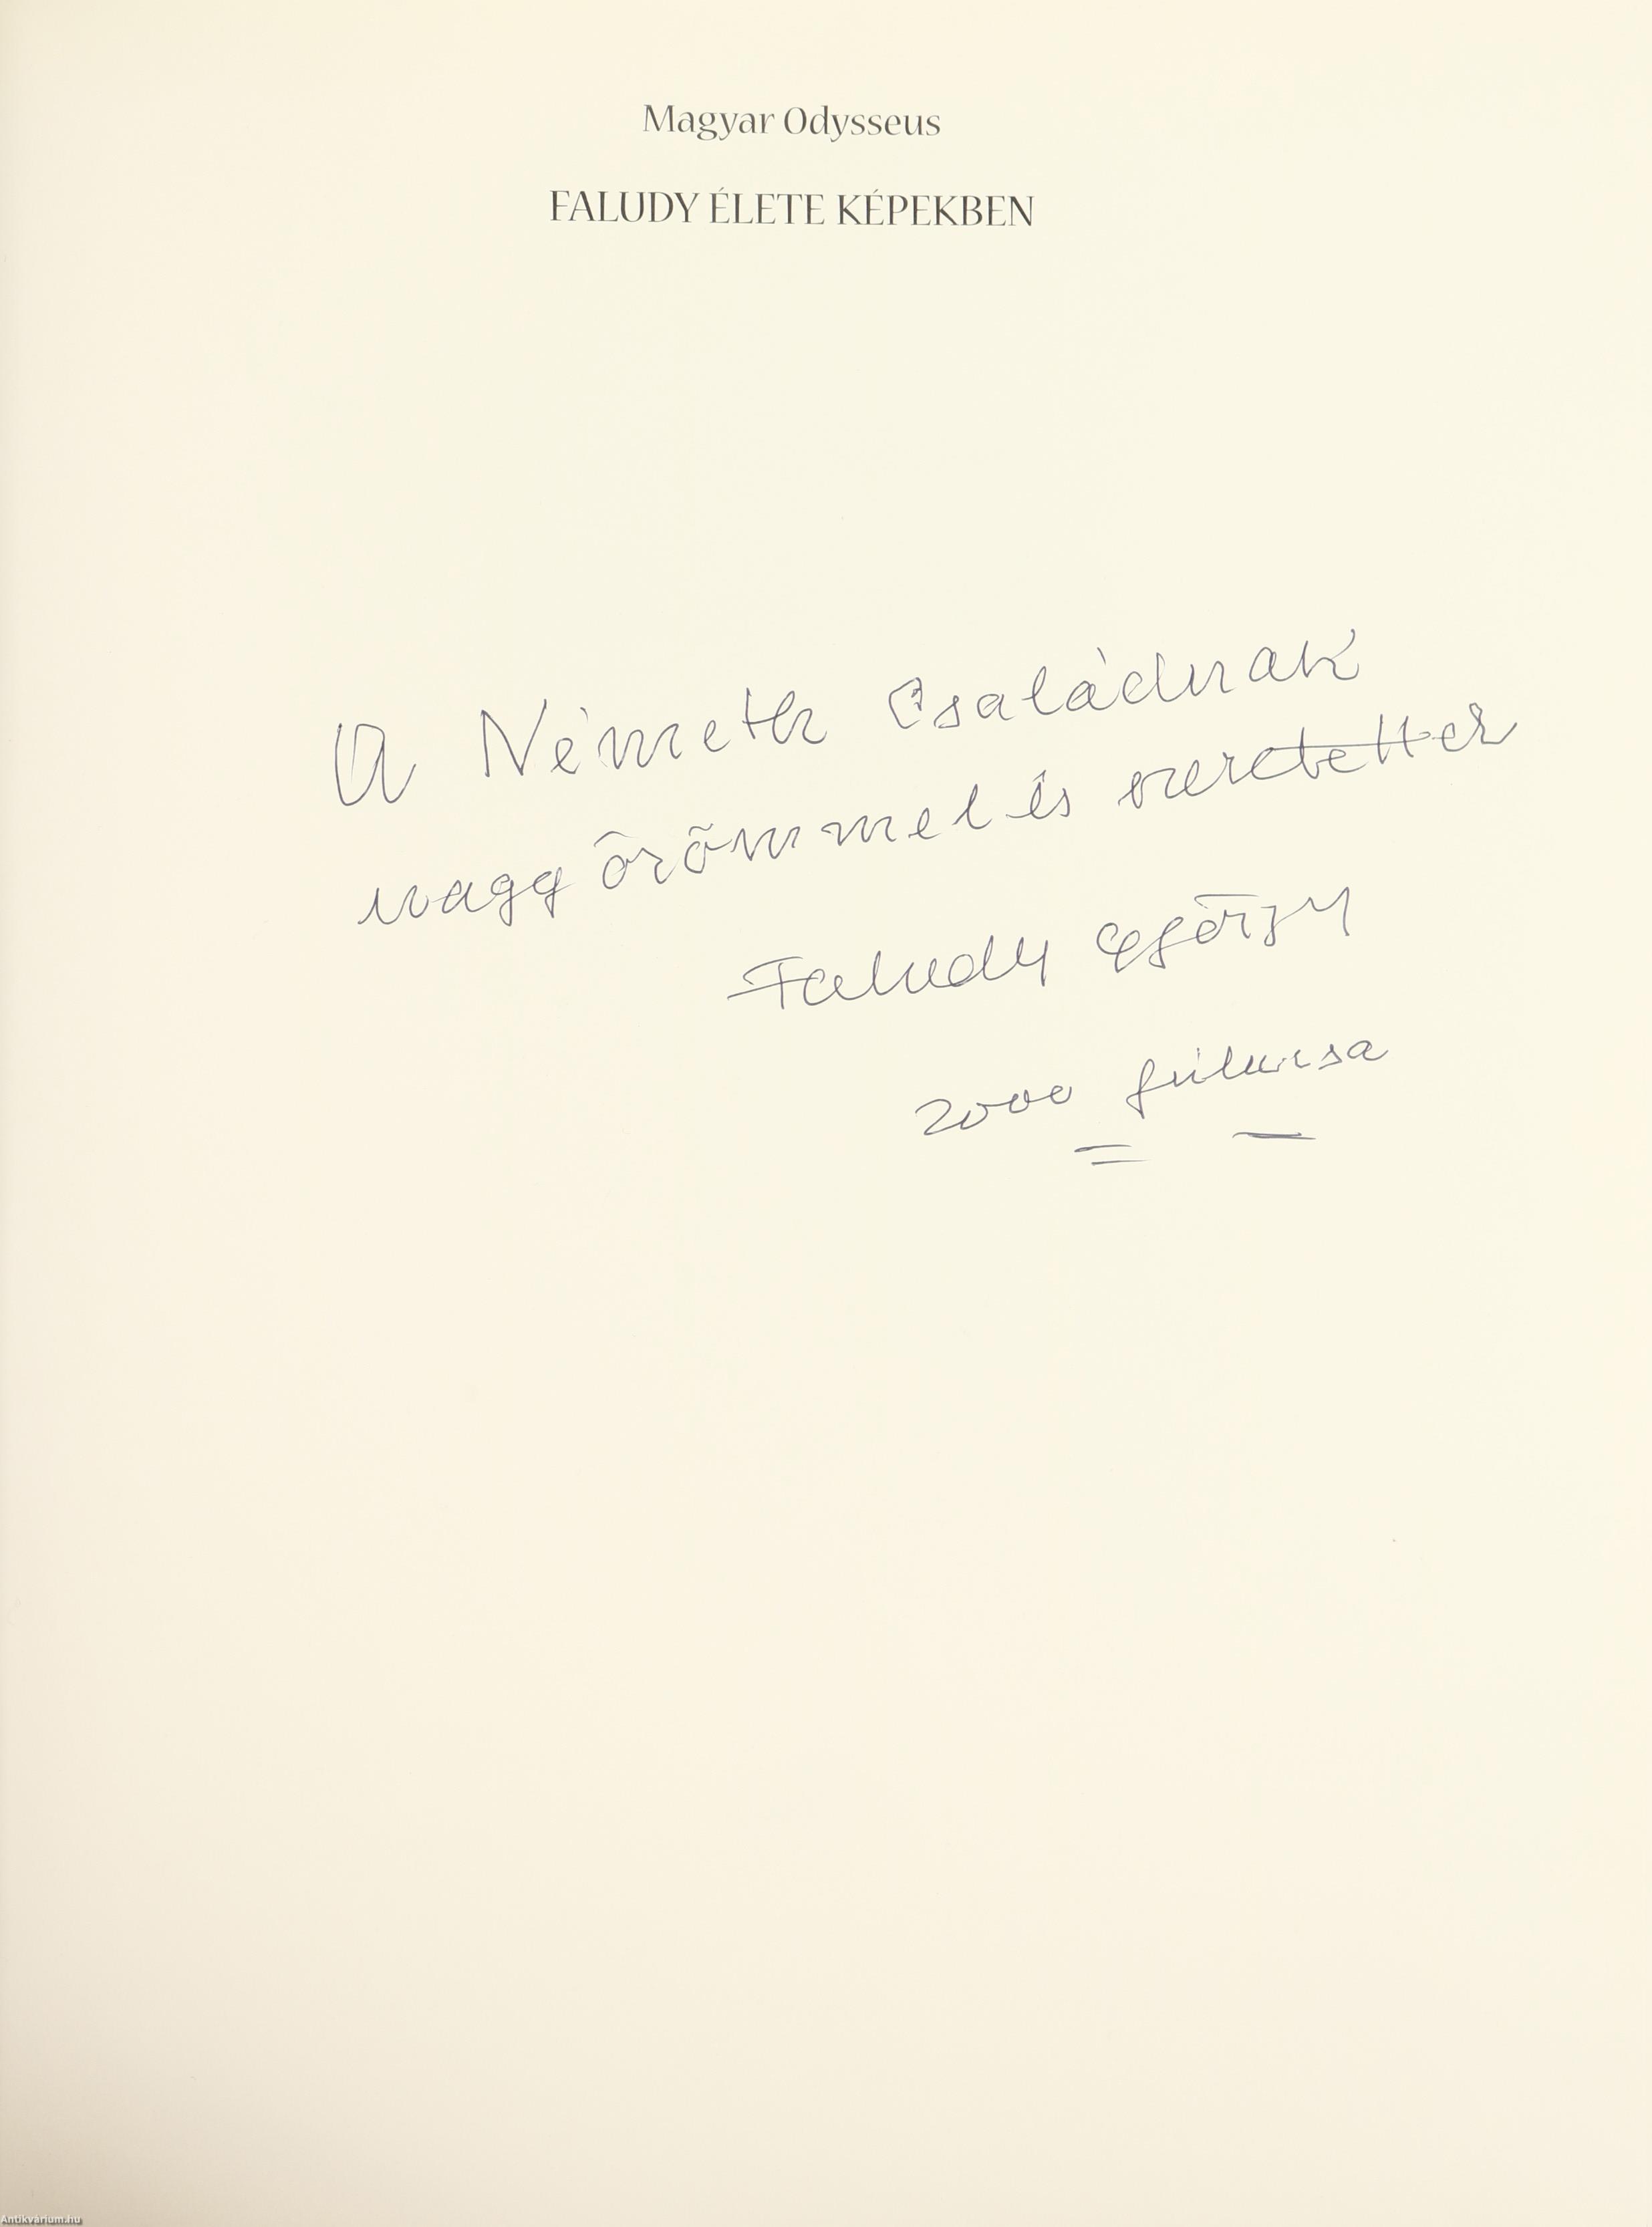 Magyar Odysseus
FALUDY ÉLETE KÉPEKBEN
A Németh Családnak
nagy örömmel és szeretettel
Faludy György
2000
Antikvárium.hu